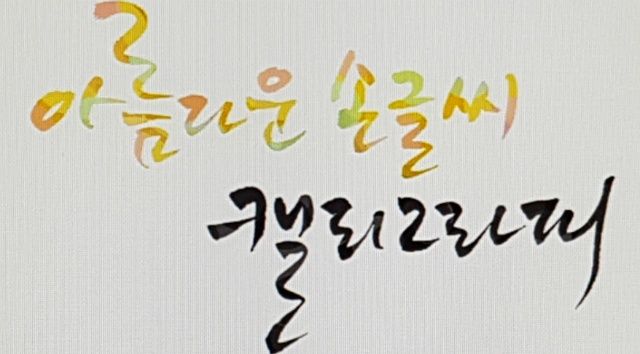 아름다운 손글씨
캘리그라피